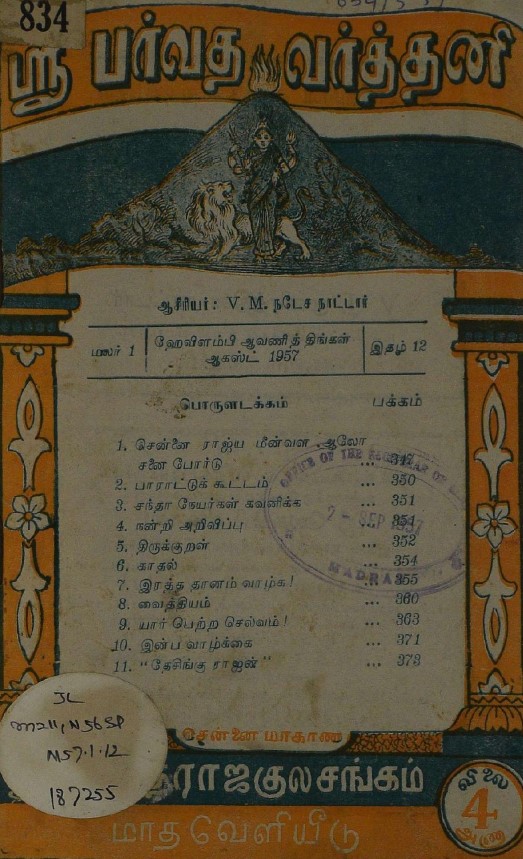 834
ஸ்ரீ பர்வத வர்த்தனி
ஆசிரியர்: V. M. நடேச நாட்டார்
மலர் 1
ஹேவிளம்பி ஆவணித் திங்கள்
ஆகஸ்ட் 1957
இதழ் 12
பொருளடக்கம் பக்கம்
1. சென்னை ராஜ்ய மீன்வள ஆலோ
சனை போர்டு ...
2. பாராட்டுக் கூட்டம் ... 350
3. சந்தா நேயர்கள் கவனிக்க ... 351
4. நன்றி அறிவிப்பு ... 351
5. திருக்குறள் ... 352
6. காதல் ... 354
7. இரத்த தானம் வாழ்க! ... 355
8. வைத்தியம் ... 360
9. யார் பெற்ற செல்வம்! ... 363
10. இன்ப வாழ்க்கை ... 371
11. "தேசிங்கு ராஜன்" ... 373
OFFICE OF THE
2 - SEP 1957
MADRAS
சென்னை யாகாண
ராஜகுலசங்கம்
மாதவெளியீடு
விலை
4
அணா
JL
N57.1.12
187255